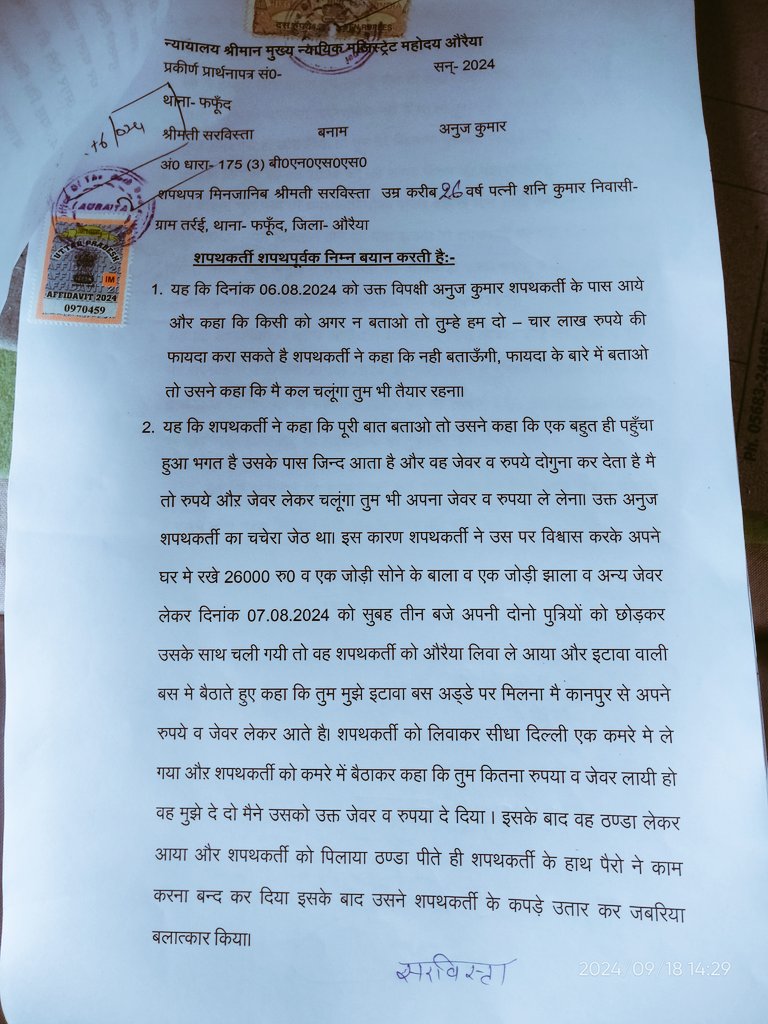 न्यायालय श्रीमान मुख्य न्यायिक मजिस्ट्रेट महोदय औरैया
प्रकीर्ण प्रार्थनापत्र सं0- सन्- 2024
थाना- फफूँद
श्रीमती सरविस्ता बनाम अनुज कुमार
अं0 धारा- 175 (3) बी0एन0एस0एस0
शपथपत्र मिनजानिब श्रीमती सरविस्ता उम्र करीब 26 वर्ष पत्नी शनि कुमार निवासी-
ग्राम तर्रई, थाना- फफूँद, जिला- औरैया
AURAIYA
UTTAR PRADESH
AFFIDAVIT 2024
0970459
शपथकर्ती शपथपूर्वक निम्न बयान करती है:-
1. यह कि दिनांक 06.08.2024 को उक्त विपक्षी अनुज कुमार शपथकर्ती के पास आये
और कहा कि किसी को अगर न बताओ तो तुम्हे हम दो – चार लाख रुपये की
फायदा करा सकते है शपथकर्ती ने कहा कि नही बताऊँगी, फायदा के बारे में बताओ
तो उसने कहा कि मै कल चलूंगा तुम भी तैयार रहना।
2. यह कि शपथकर्ती ने कहा कि पूरी बात बताओ तो उसने कहा कि एक बहुत ही पहुँचा
हुआ भगत है उसके पास जिन्द आता है और वह जेवर व रुपये दोगुना कर देता है मै
तो रुपये और जेवर लेकर चलूंगा तुम भी अपना जेवर व रुपया ले लेना। उक्त अनुज
शपथकर्ती का चचेरा जेठ था। इस कारण शपथकर्ती ने उस पर विश्वास करके अपने
घर मे रखे 26000 रु0 व एक जोड़ी सोने के बाला व एक जोड़ी झाला व अन्य जेवर
लेकर दिनांक 07.08.2024 को सुबह तीन बजे अपनी दोनो पुत्रियों को छोड़कर
उसके साथ चली गयी तो वह शपथकर्ती को औरैया लिवा ले आया और इटावा वाली
बस मे बैठाते हुए कहा कि तुम मुझे इटावा बस अड्डे पर मिलना मै कानपुर से अपने
रुपये व जेवर लेकर आते है। शपथकर्ती को लिवाकर सीधा दिल्ली एक कमरे मे ले
गया और शपथकर्ती को कमरे में बैठाकर कहा कि तुम कितना रुपया व जेवर लायी हो
वह मुझे दे दो मैने उसको उक्त जेवर व रुपया दे दिया । इसके बाद वह ठण्डा लेकर
आया और शपथकर्ती को पिलाया ठण्डा पीते ही शपथकर्ती के हाथ पैरो ने काम
करना बन्द कर दिया इसके बाद उसने शपथकर्ती के कपड़े उतार कर जबरिया
बलात्कार किया।
सरविस्ता
2024/09/18 14:29